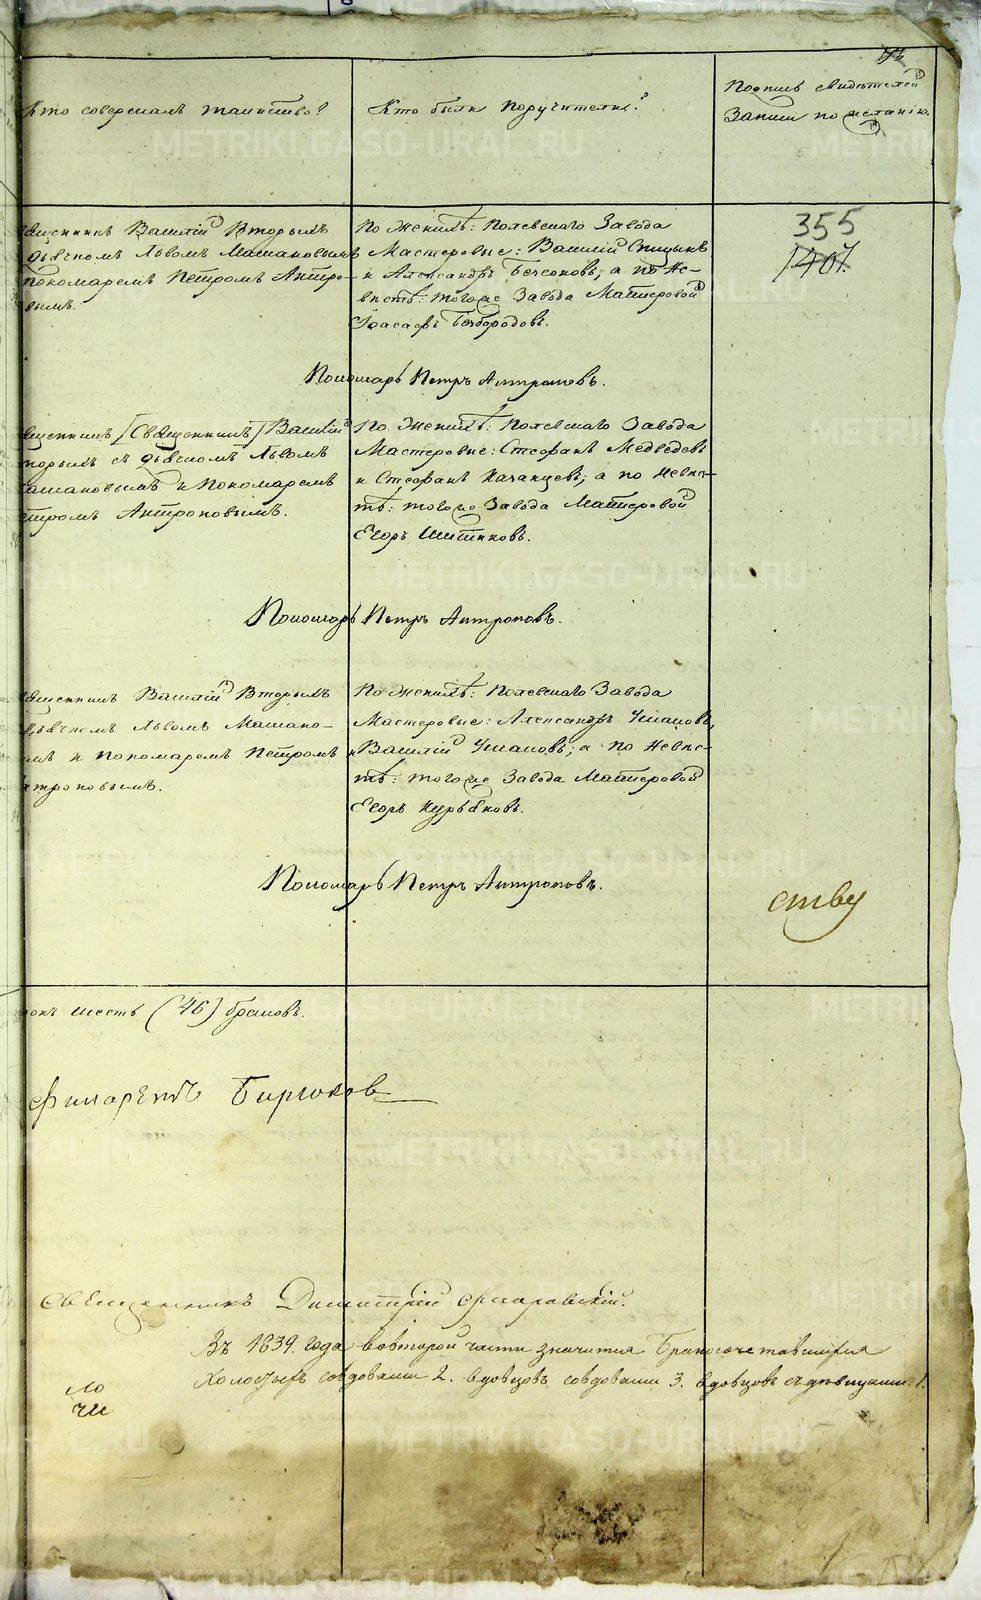 Кто совершалъ таинство?
Кто были поручители?
Подпись свидѣтелей
Записи по желанію.
355
1407
Василій Вторымъ
дьячкомъ Львомъ Машановымъ
Пономаремъ Петромъ Антро-
вымъ.
По Женихѣ: Полевскаго Завода
Мастеровые: Василій Спицынъ
и Александръ Безсоновъ; а по Не-
вѣстѣ: тогоже Завода Мастеровой
Іоасафъ Безбородовъ.
Пономарь Петръ Антроповъ.
[Священникъ] Василій
торымъ съ дьячкомъ Львомъ
ашановымъ и Пономаремъ
етромъ Антроповымъ.
По Женихѣ: Полевскаго Завода
Мастеровые: Стефанъ Медведевъ
и Стефанъ Казанцевъ; а по Невѣс-
тѣ: тогоже Завода Мастеровой
Егоръ
Пономарь Петръ Антроповъ.
Василій Вторымъ
дьячкомъ Львомъ Машано-
мъ и пономаремъ Петромъ
нтроповымъ.
По Женихѣ: Полевскаго Завода
Мастеровые: Александръ Ушаковъ,
Василій Ушаковъ; а по Невѣс-
тѣ: тогоже Завода Мастеровой
Егоръ
Пономарь Петръ Антроповъ.
ству
рокъ шесть (46) браковъ.
Филаретъ Бирюковъ
Священникъ Димитрій
Въ 1839. года вовторой части значится Бракосочетавшихся
Холостыхъ совдовами 2. вдовцовъ совдовами 3. вдовцовъ съдевицами 1.
ло
чи